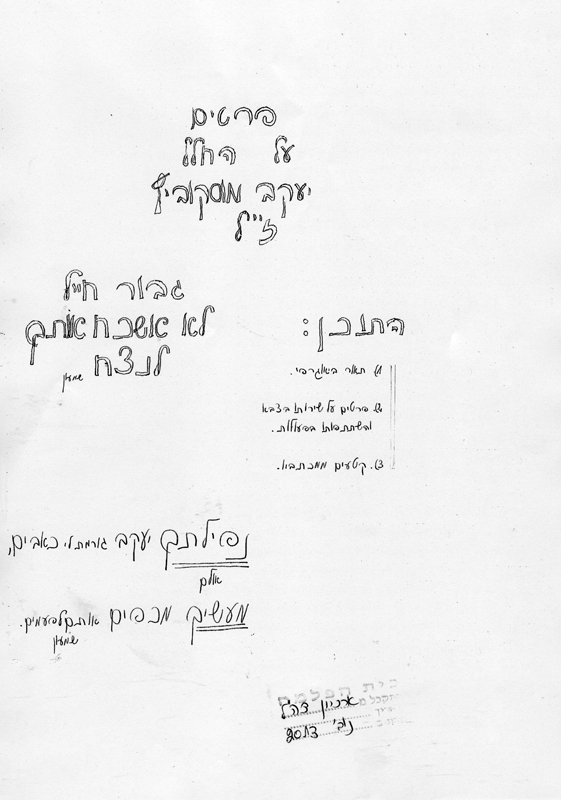 פרטים
על החלל
יעקב מוסקוביץ
ז"ל
גבור חייל
לא אשכח אותך
לנצח
שמעון
התוכן:
1) תאור ביאוגרפי.
2) פרטים על שירותו בצבא
והשתתפותו בפעולות.
3). קיטעים ממכתביו.
נפילתך יעקב גורמת לי כאבים,
אולם
מעשיך מכפים אותם לפעמים.
שמעון
בית הפלמח
ארכיון צה"ל